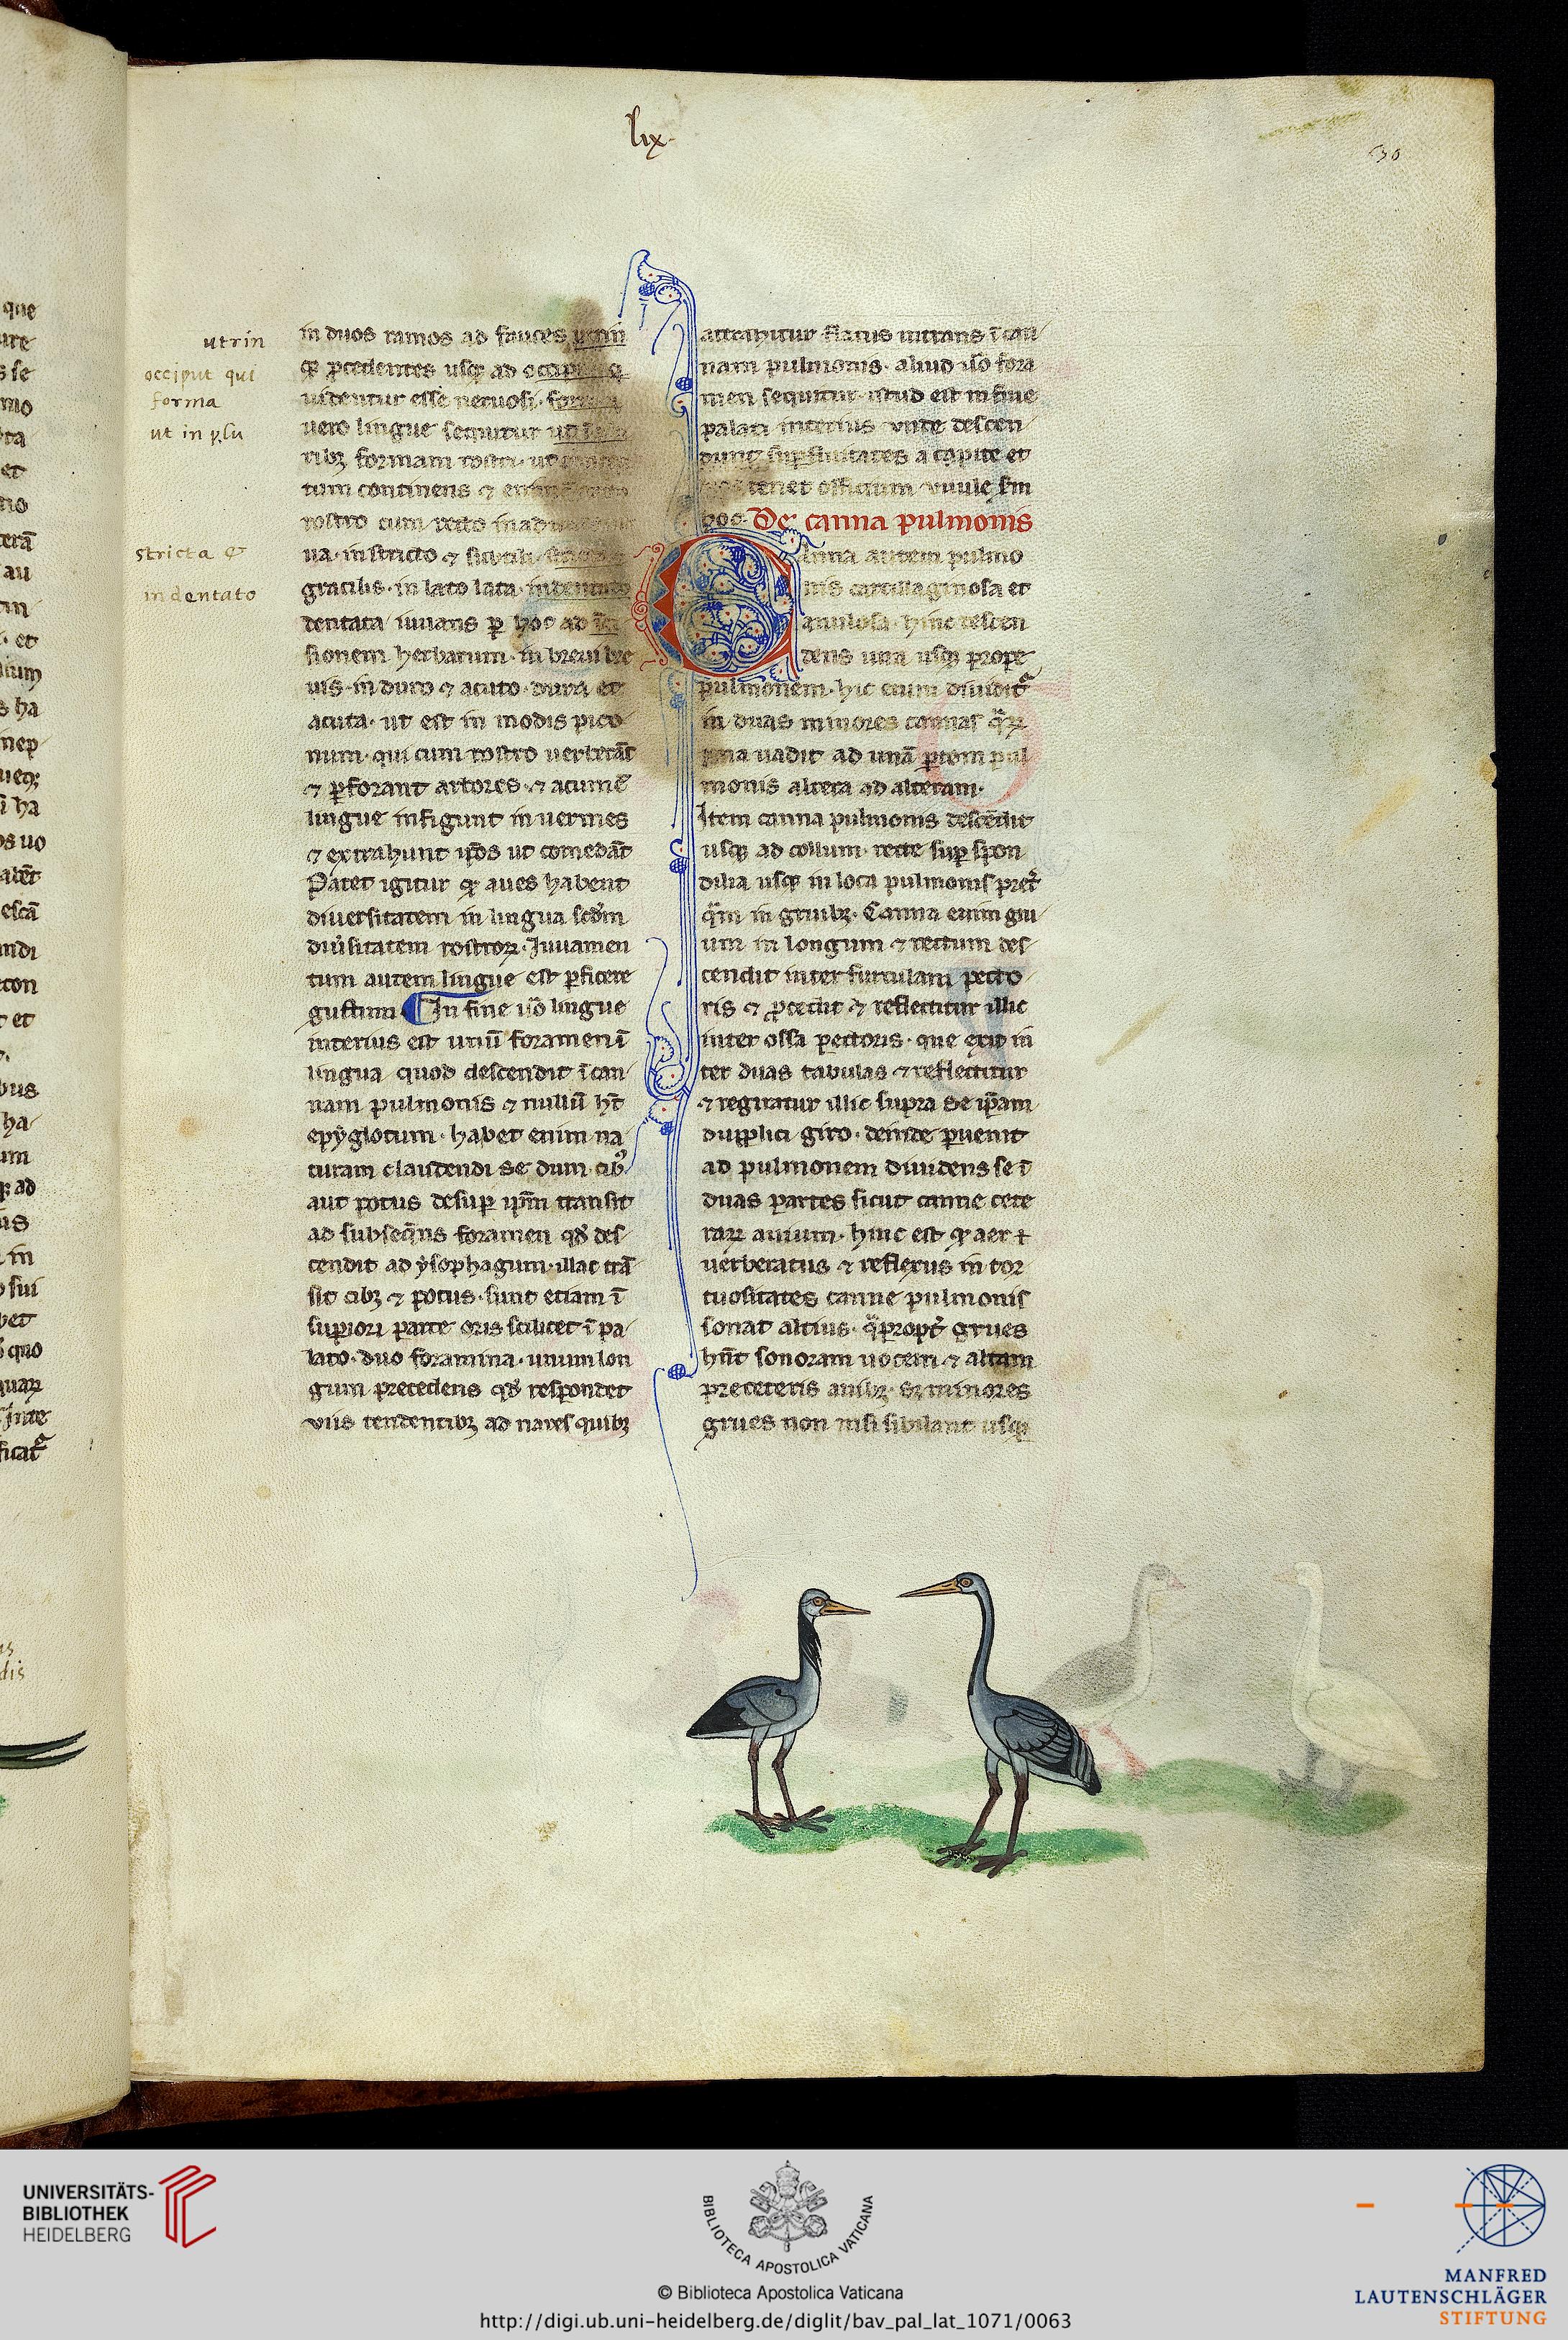 lix
30
utrin
occiput qui
forma
ut in plu
stricta &
indentato
in duos ramos ad fauces utrin
qꝫ ꝓcedentes usqꝫ ad
uidentur esse neruosi·
uero lingue sequitur
ribꝫ formam rostri· ut
tum continens ⁊
rostro cum recto
ua· in stricto ⁊ subtili·
gracilis· in lato lata· indentato
dentata iuuans ꝑ hoc ad ici
sionem herbarum· in breui bre
uis· in duro ⁊ acuto· dura et
acuta· ut est in modis pico
num· qui cum rostro uerberāt
⁊ ꝑforant arbores· ⁊ acumē
lingue infigunt in uermes
⁊ extrahunt ip̄os ut comedāt
Patet igitur qꝫ aues habent
diuersitatem in lingua scd̄m
diu̾sitatem rostroꝝ· Iuuamen
tum autem lingue est ꝑficere
gustum· In fine u̾o lingue
interius est unū foramen ī
lingua quod descendit ī can
nam pulmonis ⁊ nullū hт̄
epyglotum· habet enim na
turam claudendi se dum cibꝰ
aut potus desuꝑ ip̄m transit
ad subseqn̄s foramen qd̾ des
cendit ad ysophagum· illac trā
sit cibꝫ ⁊ potus· sunt etiam ī
suꝑiori parte oris scilicet ī pa
lato· duo foramina· unum lon
gum precedens qd̾ respondet
viis tendentibꝫ ad nares quibꝫ
attrahitur flatus intrans ī can
nam pulmonis· aliud u̾o fora
men sequitur· istud est in fine
palati interius unde descen
dunt suꝑfluitates a capite et
hoc tenet officium vuule sm̄
hoc· De canna pulmonis
Canna autem pulmo
nis cartilaginosa et
anulosa· hinc descen
dens una usqꝫ prope
pulmonem· hic eium diuidit᷑
in duas minores cannas q̄ꝝ
una uadit ad unā ꝑtem pul
monis altera ad alteram·
Item canna pulmonis descēdit
usqꝫ ad collum· recte suꝑ spon
dilia usqꝫ in loca pulmonis pret̾
q̄m in gruibꝫ· Canna enim gru
um in longum ⁊ rectum des
cendit inter furculam pecto
ris ⁊ ꝓcedit ⁊ reflectitur illic
inter ossa pectoris· que exit in
ter duas tabulas ⁊ reflectitur
⁊ regiratur illic supra de ip̄am
dupplici giro· deinde ꝑuenit
ad pulmonem diuidens se ī
duas partes sicut canne cete
raꝝ auium· hinc est qꝫ aer ī
uerberatus ⁊ reflexus in tor
tuositates canne pulmonis
sonat altius· q̄propt̾ grues
hn̄t sonoram uocem ⁊ altam
pre ceteris auibꝫ· sꝫ minores
grues non nisi sibilant usqꝫ
UNIVERSITÄTS-
BIBLIOTHEK
HEIDELBERG
BIBLIOTECA APOSTOLICA VATICANA
© Biblioteca Apostolica Vaticana
http://digi.ub.uni-heidelberg.de/diglit/bav_pal_lat_1071/0063
MANFRED
LAUTENSCHLÄGER
STIFTUNG